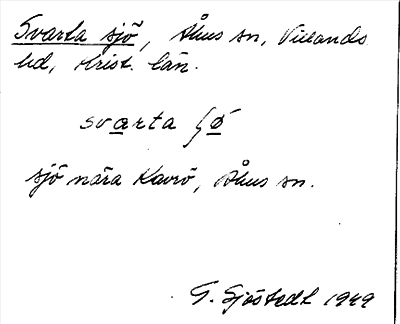 Svarta sjö, Åhus sn, Villands
hd, Krist. län.
svarta ʃø
sjö nära Kavrö, Åhus sn.
G. Sjöstedt 1949